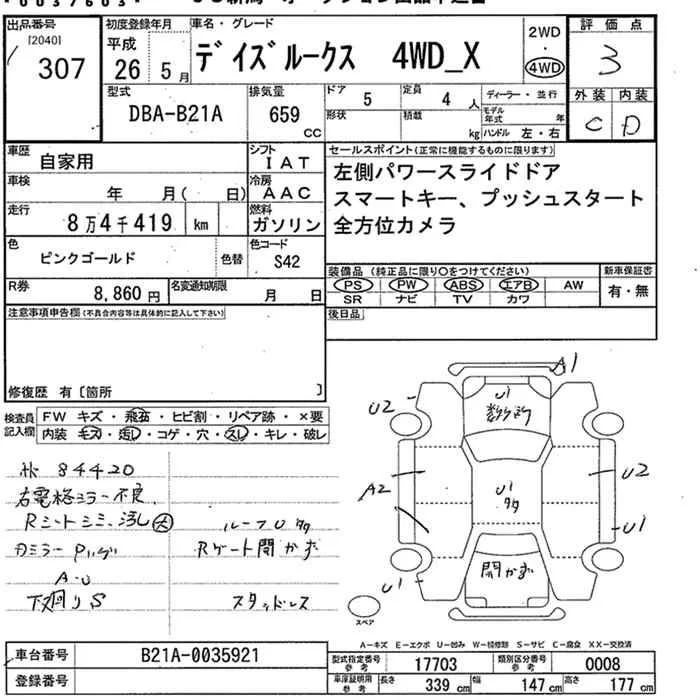 出品番号
[2040]
307
初度登録年月
平成
26 5月
車名・グレード
デイズルークス 4WD_X
2WD
・
4WD
評価点
3
外装 内装
C D
型式
DBA-B21A
排気量
659
CC
ドア
5
定員
4 人
形状
積載
kg
ディーラー・並行
モデル年式 年
ハンドル 左・右
車歴
自家用
シフト
IAT
車検
年 月( 日)
冷房
AAC
走行
8万4千419 km
燃料
ガソリン
色
ピンクゴールド
色替
色コード
S42
R券
8,860円
名変通知期限
月 日
セールスポイント(正常に機能するものに限ります)
左側パワースライドドア
スマートキー、プッシュスタート
全方位カメラ
装備品 (純正品に限り○をつけてください)
PS PW ABS エアB AW
SR ナビ TV カワ
新車保証書
有・無
後日品
注意事項申告欄(不具合内容等は具体的に記入して下さい)
修復歴 有〔箇所 〕
検査員
記入欄
FW キズ・飛石・ヒビ割・リペア跡・×要
内装 キズ・汚レ・コゲ・穴・スレ・キレ・破レ
84420
右電格ミラー不良
Rシートシミ、汚レ大
ルーフU多
Rゲート開かず
A・U
下廻りS
スタッドレス
A1
U2
U1
数ヶ所
A2
U1
多
U2
U1
U1
開かず
スペア
A-キズ E-エクボ U-凹み W-補修跡 S-サビ C-腐食 XX-交換済
車台番号
B21A-0035921
登録番号
型式指定番号
参考
17703
類別区分番号
参考
0008
車庫証明用
参考
長さ 339 cm
幅 147 cm
高さ 177 cm